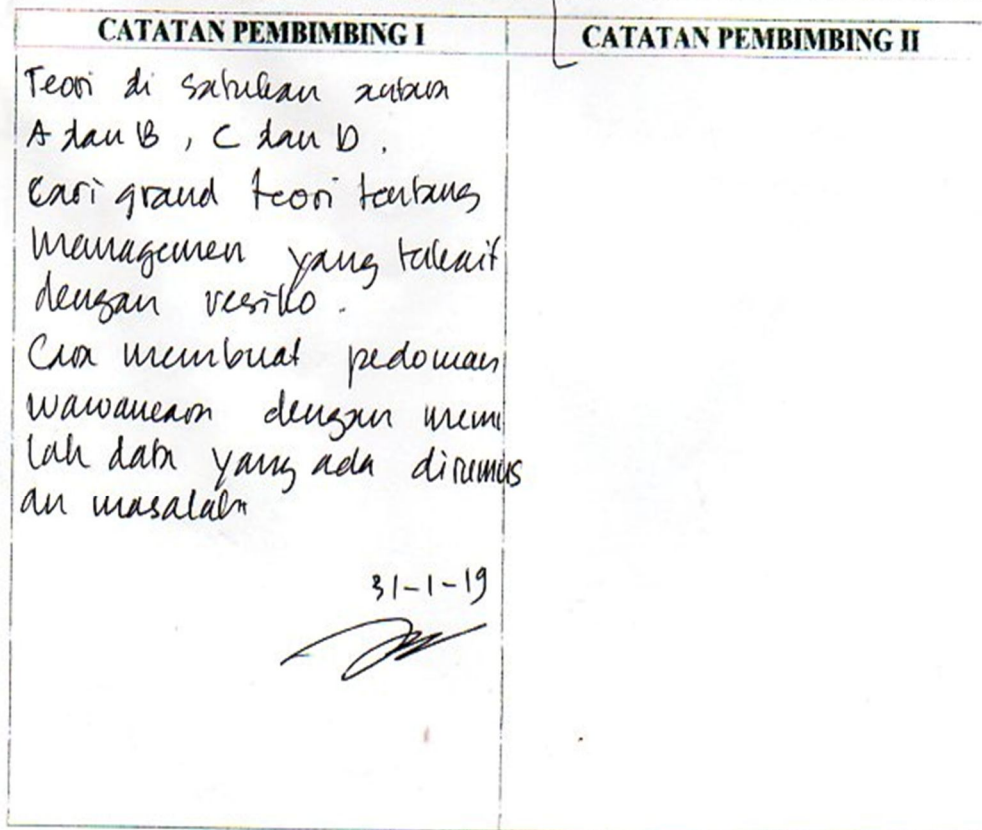 CATATAN PEMBIMBING I
CATATAN PEMBIMBING II
Teori di satukan antara
A dan B, C dan D.
Cari grand teori tentang
managemen yang terkait
dengan resiko.
Cara membuat pedoman
wawancara dengan memi
lah data yang ada dirumus
an masalah
31-1-19